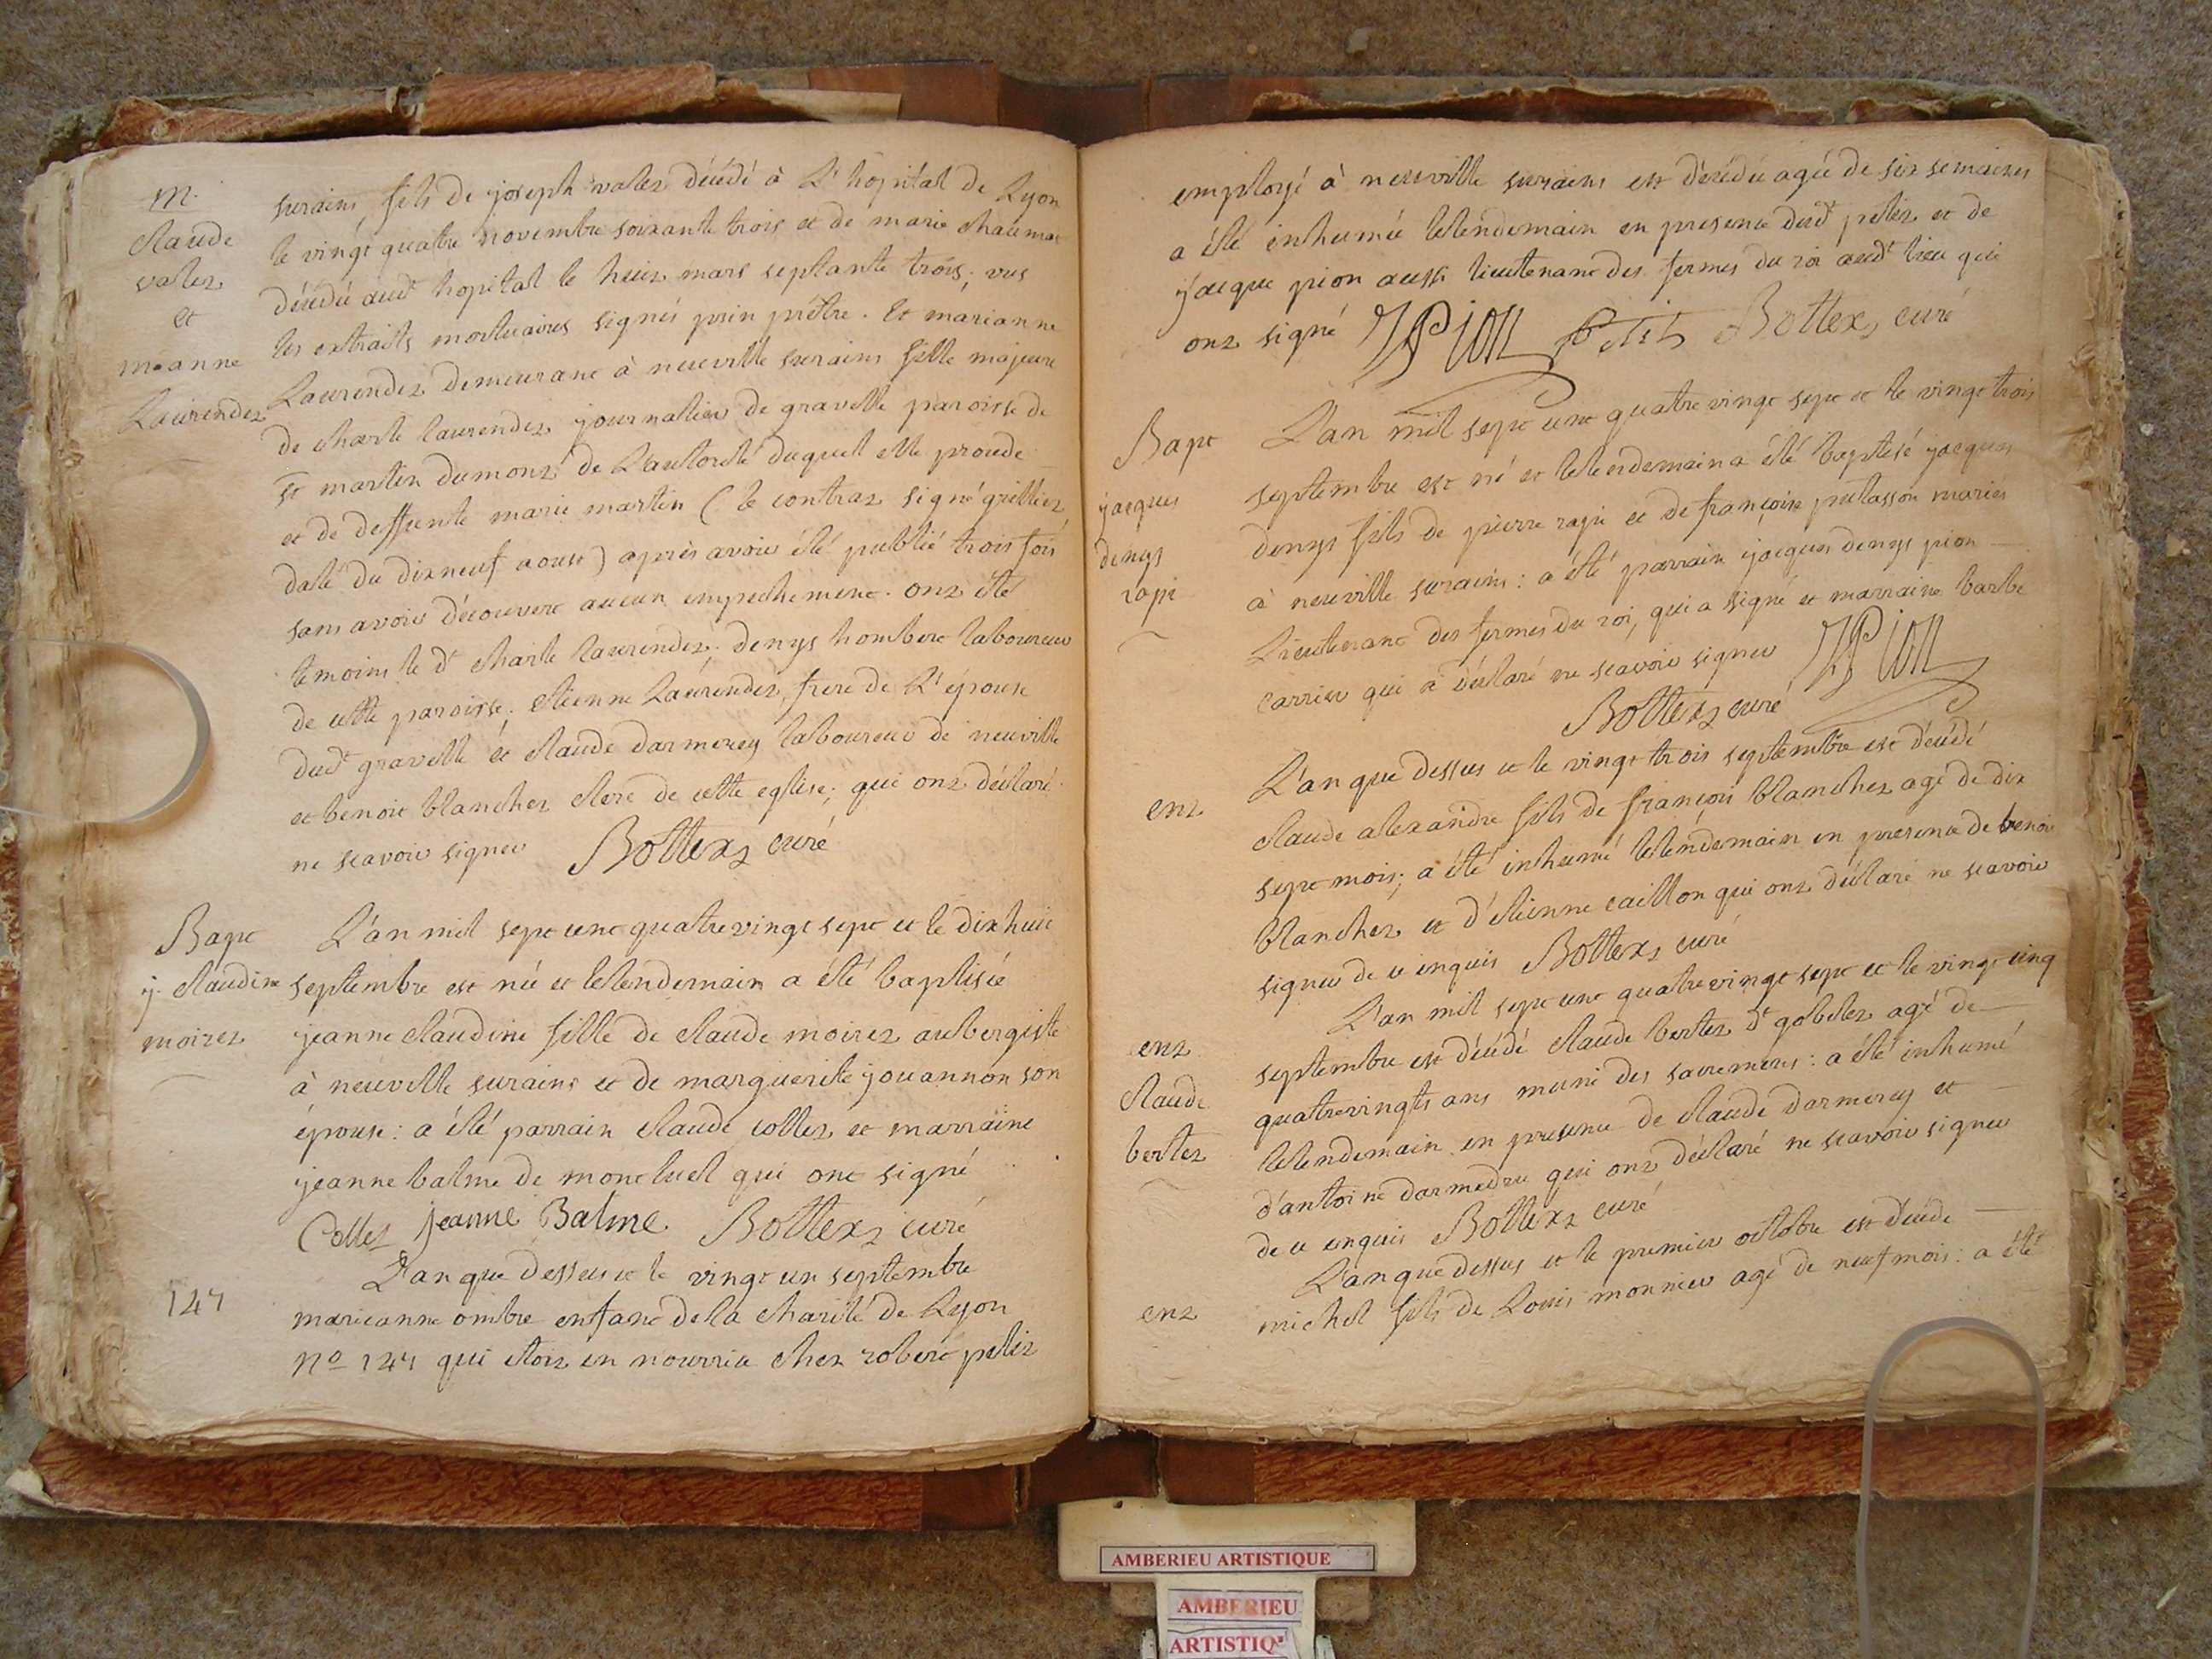 M.
claude
valet
et
m-anne
Laurendet
surains, fils de joseph valet décédé à L'hopital de Lyon
le vingt quatre novembre soixante trois et de marie chaumat
décédée audt hopital le huit mars septante trois; vus
les extraits mortuaires signés prin prêtre. Et marianne
Laurendet demeurant à neuville surains fille majeure
de charle laurendet journalier de gravelle paroisse de
st martin dumont de L'autorité duquel elle procede
et de deffunte marie martin (le contrat signé grilliet
daté du dixneuf aoust) après avoir été publié trois fois
sans avoir découvert aucun empechement. ont été
temoins le dt charle laurendet. denys hombert laboureur
de cette paroisse; etienne Laurendet, frere de L'épouse
dudt gravelle et claude darmerey laboureur de neuville
et benoit blanchet clerc de cette eglise; qui ont déclaré
ne scavoir signer Bottex curé
Bapt
j. claudine
moiret
L'an mil sept cent quatre vingt sept et le dix huit
septembre est née et le lendemain a été baptisée
jeanne claudine fille de claude moiret aubergiste
à neuville surains et de marguerite jouannon son
épouse: a été parrain claude collet et marraine
jeanne balme de montluel qui ont signé
Collet jeanne Balme Bottex curé
147
L'an que dessus et le vingt un septembre
marieanne ombre enfant de la charité de Lyon
No 147 qui etoit en nourrice chez robert petit
employé à neuville surains est décédée agée de six semaines
a été inhumée le lendemain en presence dudt petit et de
jacque pion aussi lieutenant des fermes du roi audt lieu qui
ont signé JDPion Petit Bottex, curé
Bapt
jacques
denys
rapi
L'an mil sept cent quatre vingt sept et le vingt trois
septembre est né et le lendemain a été baptisé jacques
denys fils de pierre rapi et de françoise pelasson mariés
à neuville surains: a été parrain jacques denys pion
Lieutenant des fermes du roi, qui a signé et marraine barbe
carrier qui a déclaré ne scavoir signer JDPion
Bottex curé
ent
L'an que dessus et le vingt trois septembre est décédé
claude alexandre fils de françois blanchet agé de dix
sept mois; a été inhumé le lendemain en presence de benoit
blanchet et d'etienne caillon qui ont déclaré ne scavoir
signer de ce enquis Bottex curé
ent
claude
bertet
L'an mil sept cent quatre vingt sept et le vingt cinq
septembre est décédé claude bertet dt gobelet agé de
quatrevingts ans muni des sacremens: a été inhumé
le lendemain en presence de claude darmerey et
d'antoine darmedru qui ont déclaré ne scavoir signer
de ce enquis Bottex curé
ent
L'an que dessus et le premier octobre est décédé
michel fils de Louis monnier agé de neuf mois: a été
AMBERIEU ARTISTIQUE
AMBERIEU
ARTISTIQ